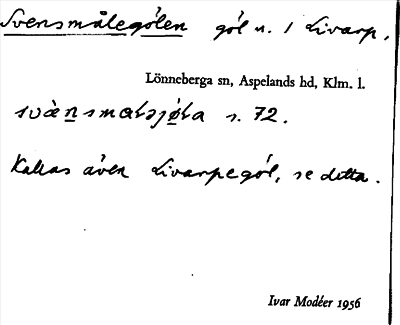 Svensmålegölen göl n. / Livarp.
Lönneberga sn, Aspelands hd, Klm. l.
s. 72.
Kallas även Livarpegöl, se detta.
Ivar Modéer 1956